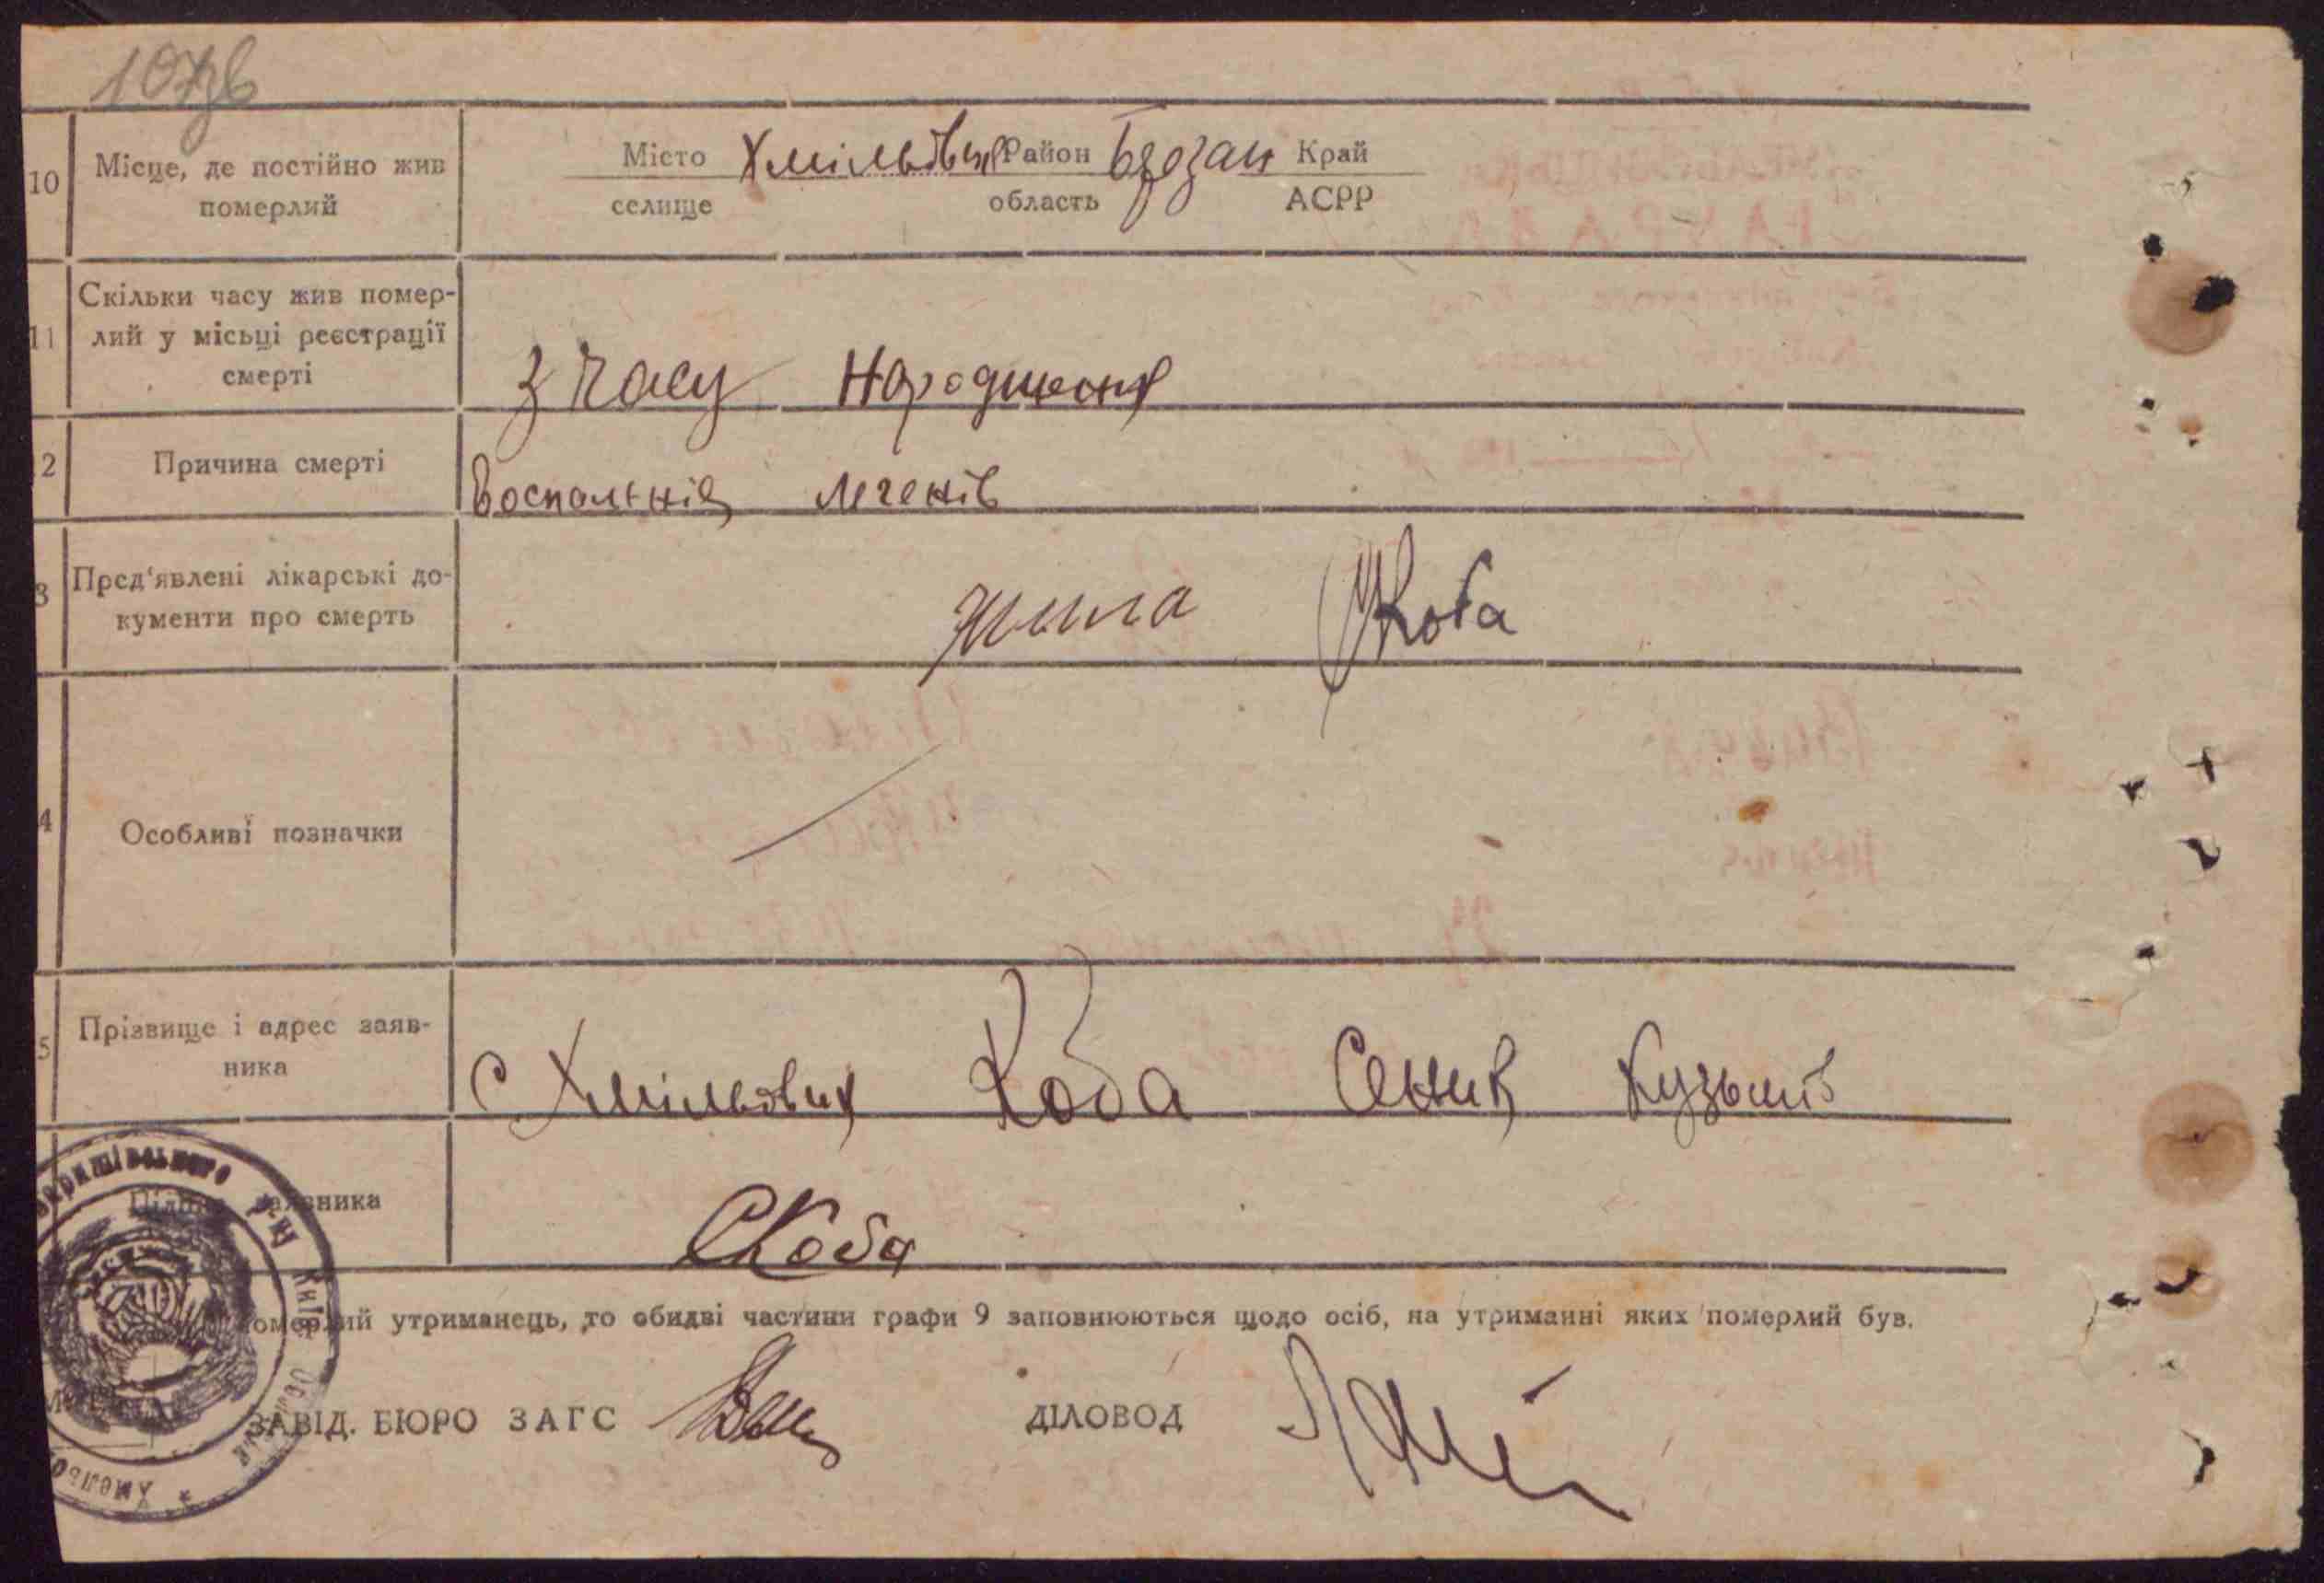 107зв
10 Місце, де постійно жив померлий
Місто Хмільовик Район Березан Край
селище область АСРР
11 Скільки часу жив помер-
лий у місьці реєстрації
смерті
З часу народження
2 Причина смерті
Воспальнія легенів
3 Пред'явлені лікарські до-
кументи про смерть
Коба
4 Особливі позначки
5 Прізвище і адрес заяв-
ника
С Хмільовик Коба Сеник Кузьмів
заявника
СКоба
омерлий утриманець, то обидві частини графи 9 заповнюються щодо осіб, на утриманні яких померлий був.
ЗАВІД. БЮРО ЗАГС ДІЛОВОД